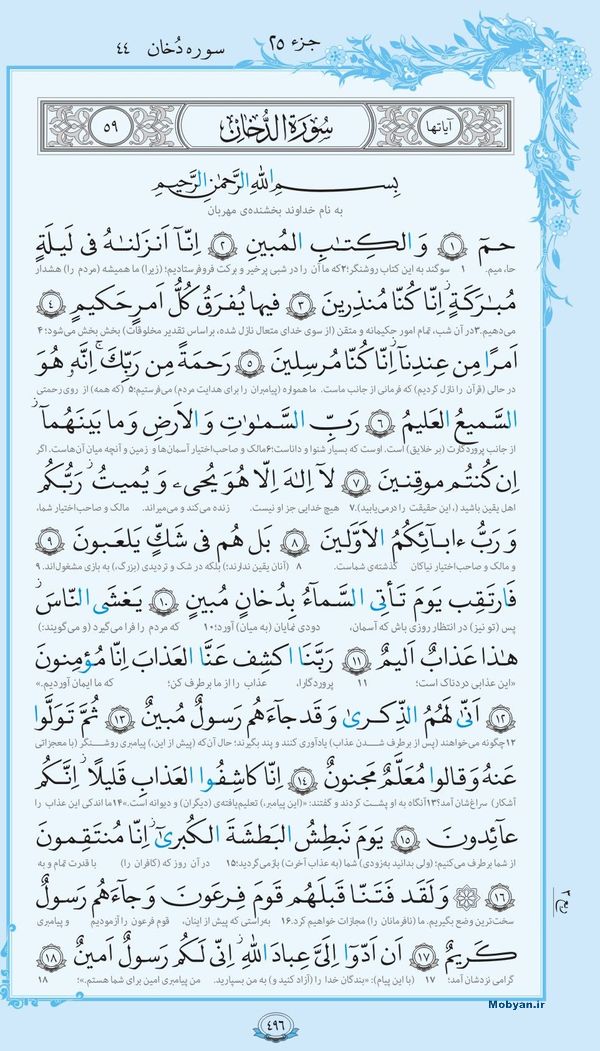 جزء ۲۵
سوره دُخان ۴۴
آیاتها سُورَةُ الدُّخان ۵۹
بِسمِ اللهِ الرَّحمٰنِ الرَّحیمِ
به نام خداوند بخشنده‌ی مهربان
حمٓ ۱ وَ الکِتٰبِ المُبینِ ۲ اِنّآ اَنزَلنٰهُ فی لَیلَةٍ
حا، میم. ۱ سوگند به این کتاب روشنگر؛۲ که ما آن را در شبی پرخیر و برکت فروفرستادیم؛ (زیرا) ما همیشه (مردم را) هشدار
مُبٰرَکَةٍ ۚ اِنّا کُنّا مُنذِرینَ ۳ فیها یُفرَقُ کُلُّ اَمرٍ حَکیمٍ ۴
می‌دهیم.۳ در آن شب، تمام امور حکیمانه و متقن (از سوی خدای متعال نازل شده، براساس تقدیر مخلوقات) بخش بخش می‌شود؛ ۴
اَمرًا مِن عِندِنا ۚ اِنّا کُنّا مُرسِلینَ ۵ رَحمَةً مِن رَبِّکَ ۚ اِنَّهٗ هُوَ
در حالی (قرآن را نازل کردیم) که فرمانی از جانب ماست. ما همواره (پیامبران را برای هدایت مردم) می‌فرستیم؛۵ (که همه) از روی رحمتی
السَّمیعُ العَلیمُ ۶ رَبِّ السَّمٰوٰتِ وَ الاَرضِ وَ ما بَینَهُمآ ۖ
از جانب پروردگارت (بر خلایق) است. اوست که بسیار شنوا و داناست؛۶ مالک و صاحب‌اختیار آسمان‌ها و زمین و آنچه میان آن‌هاست. اگر
اِن کُنتُم موقِنینَ ۷ لآ اِلٰهَ اِلّا هُوَ یُحیی وَ یُمیتُ ۖ رَبُّکُم
اهل یقین باشید (، این حقیقت را درمی‌یابید).۷ هیچ خدایی جز او نیست. زنده می‌کند و می‌میراند. مالک و صاحب‌اختیار شما،
وَ رَبُّ ءابآئِکُمُ الاَوَّلینَ ۸ بَل هُم فی شَکٍّ یَلعَبونَ ۹
و مالک و صاحب‌اختیار نیاکان گذشته‌ی شماست. ۸ (آنان یقین ندارند؛) بلکه در شک و تردیدی (بزرگ،) به بازی مشغول‌اند. ۹
فَارتَقِب یَومَ تَأتِی السَّمآءُ بِدُخانٍ مُبینٍ ۱۰ یَغشَی النّاسَ ۖ
پس (تو نیز) در انتظار روزی باش که آسمان، دودی نمایان (به میان) آورد؛ ۱۰ که مردم را فرا می‌گیرد (و می‌گویند:)
هٰذا عَذابٌ اَلیمٌ ۱۱ رَبَّنَا اکشِف عَنَّا العَذابَ اِنّا مُؤمِنونَ
«این عذابی دردناک است؛ ۱۱ پروردگارا، عذاب را از ما برطرف کن؛ که ما ایمان آوردیم.»
۱۲ اَنّیٰ لَهُمُ الذِّکریٰ وَ قَد جآءَهُم رَسولٌ مُبینٌ ۱۳ ثُمَّ تَوَلَّوا
۱۲ چگونه می‌خواهند (پس از برطرف شدن عذاب) یادآوری کنند و پند بگیرند؛ حال آن‌که (پیش از این،) پیامبری روشنگر (با معجزاتی
عَنهُ وَ قالوا مُعَلَّمٌ مَجنونٌ ۱۴ اِنّا کاشِفُوا العَذابِ قَلیلًا ۚ اِنَّکُم
آشکار) سراغ‌شان آمد؟۱۳ آنگاه به او پشت کردند و گفتند: «(این پیامبر،) تعلیم‌یافته‌ی (دیگران) و دیوانه است.»۱۴ ما اندکی این عذاب را
عآئِدونَ ۱۵ یَومَ نَبطِشُ البَطشَةَ الکُبریٰٓ ۚ اِنّا مُنتَقِمونَ
از شما برطرف می‌کنیم؛ (ولی بدانید به‌زودی) شما (به عذاب آخرت) بازمی‌گردید؛۱۵ در آن روز که (کافران را) با قدرت تمام و به
۱۶ وَ لَقَد فَتَنّا قَبلَهُم قَومَ فِرعَونَ وَ جآءَهُم رَسولٌ
سخت‌ترین وضع بگیریم. ما (نافرمانان را) مجازات خواهیم کرد.۱۶ به‌راستی که پیش از اینان، قوم فرعون را آزمودیم و پیامبری
کَریمٌ ۱۷ اَن اَدّوٓا اِلَیَّ عِبادَ اللهِ ۖ اِنّی لَکُم رَسولٌ اَمینٌ ۱۸
گرامی نزدشان آمد؛ ۱۷ (با این پیام): «بندگان خدا را (آزاد کنید و) به من بسپارید. من پیامبری امین برای شما هستم.»؛ ۱۸
۴۹۶
Mobyan.ir